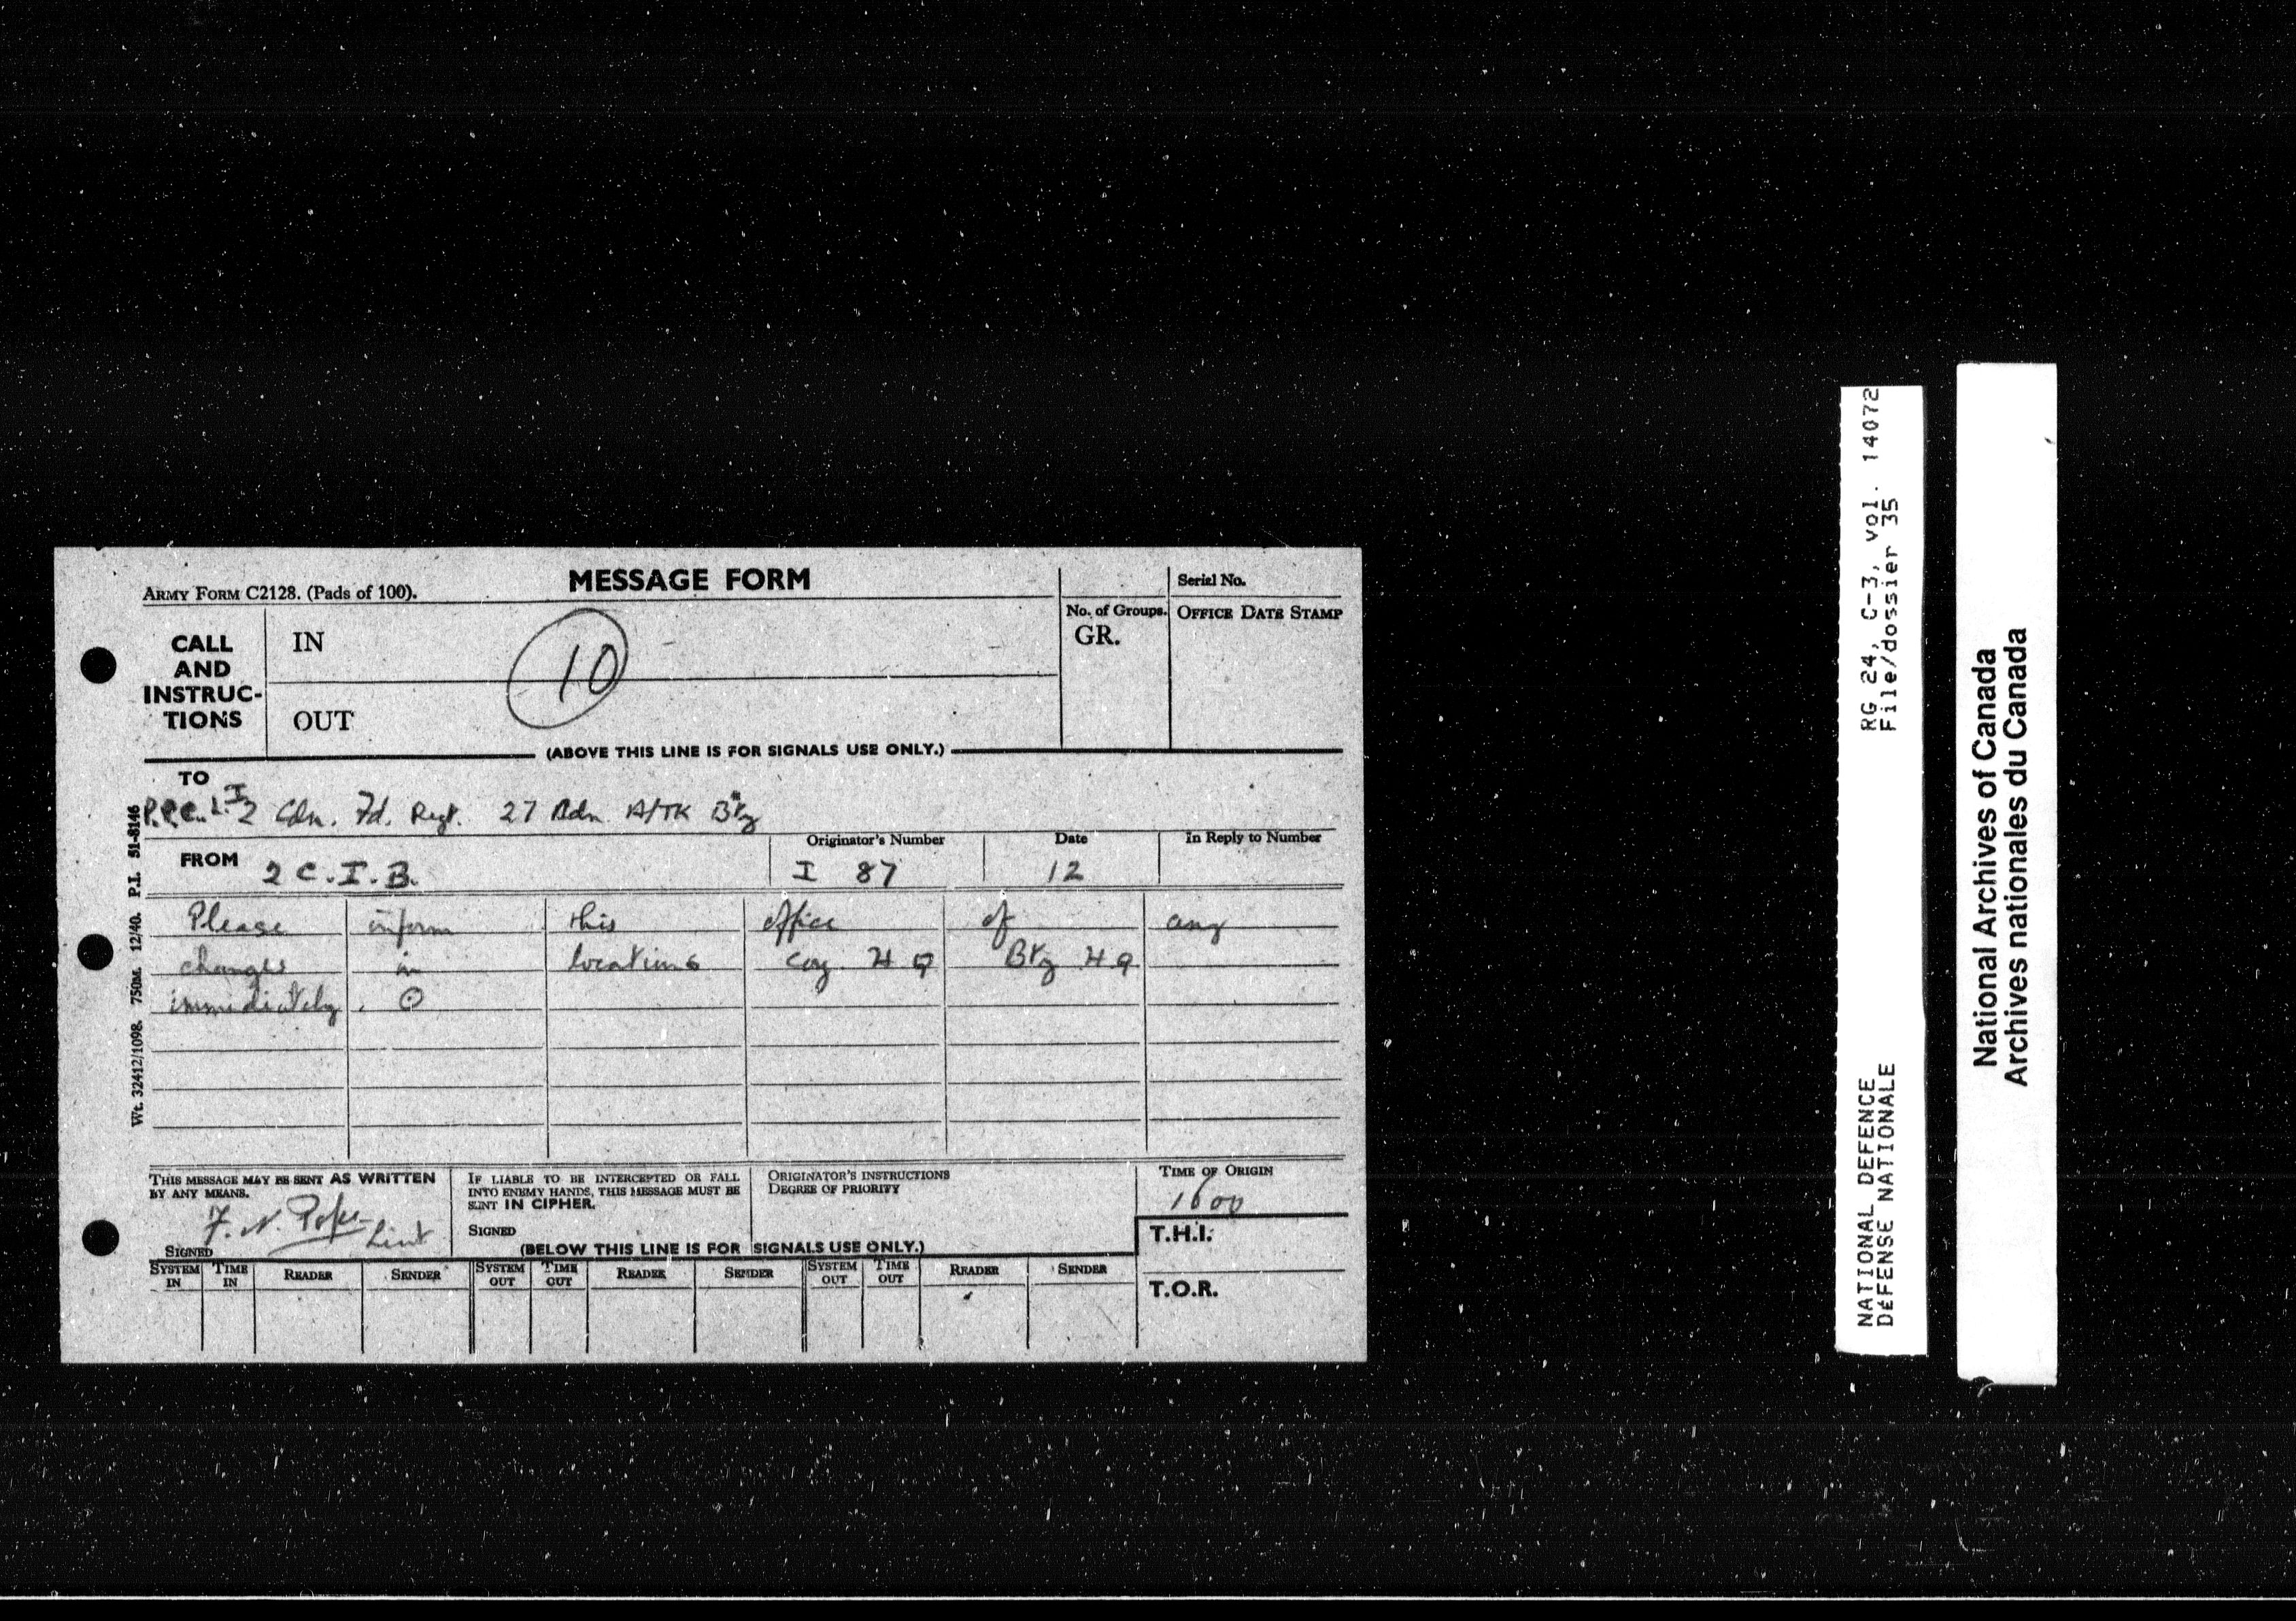 MESSAGE FORM
ARMY FORM C2128. (Pads of 100).
Serial No.
CALL AND INSTRUC-TIONS
IN
10
OUT
No. of Groups.
GR.
OFFICE DATE STAMP
(ABOVE THIS LINE IS FOR SIGNALS USE ONLY.)
TO
P.P.C.L.I 2 Cdn. Fd. Regt. 27 Bdn A/TK Bty
FROM 2 C.I.B.
Originator's Number
I 87
Date
12
In Reply to Number
Please inform this office of any
changes in locations Coy HQ Bty HQ
immediately. ⊙
Wt. 32412/1098. 750M. 12/40. P.I. 51-8146
THIS MESSAGE MAY BE SENT AS WRITTEN
BY ANY MEANS.
F. N. Pope Lieut
SIGNED
IF LIABLE TO BE INTERCEPTED OR FALL
INTO ENEMY HANDS, THIS MESSAGE MUST BE
SENT IN CIPHER.
SIGNED
ORIGINATOR'S INSTRUCTIONS
DEGREE OF PRIORITY
TIME OF ORIGIN
1600
T.H.I.
T.O.R.
(BELOW THIS LINE IS FOR SIGNALS USE ONLY.)
SYSTEM IN TIME IN READER SENDER SYSTEM OUT TIME OUT READER SENDER SYSTEM OUT TIME OUT READER SENDER
NATIONAL DEFENCE RG 24, C-3, vol. 14072
DÉFENSE NATIONALE File/dossier 35
National Archives of Canada
Archives nationales du Canada